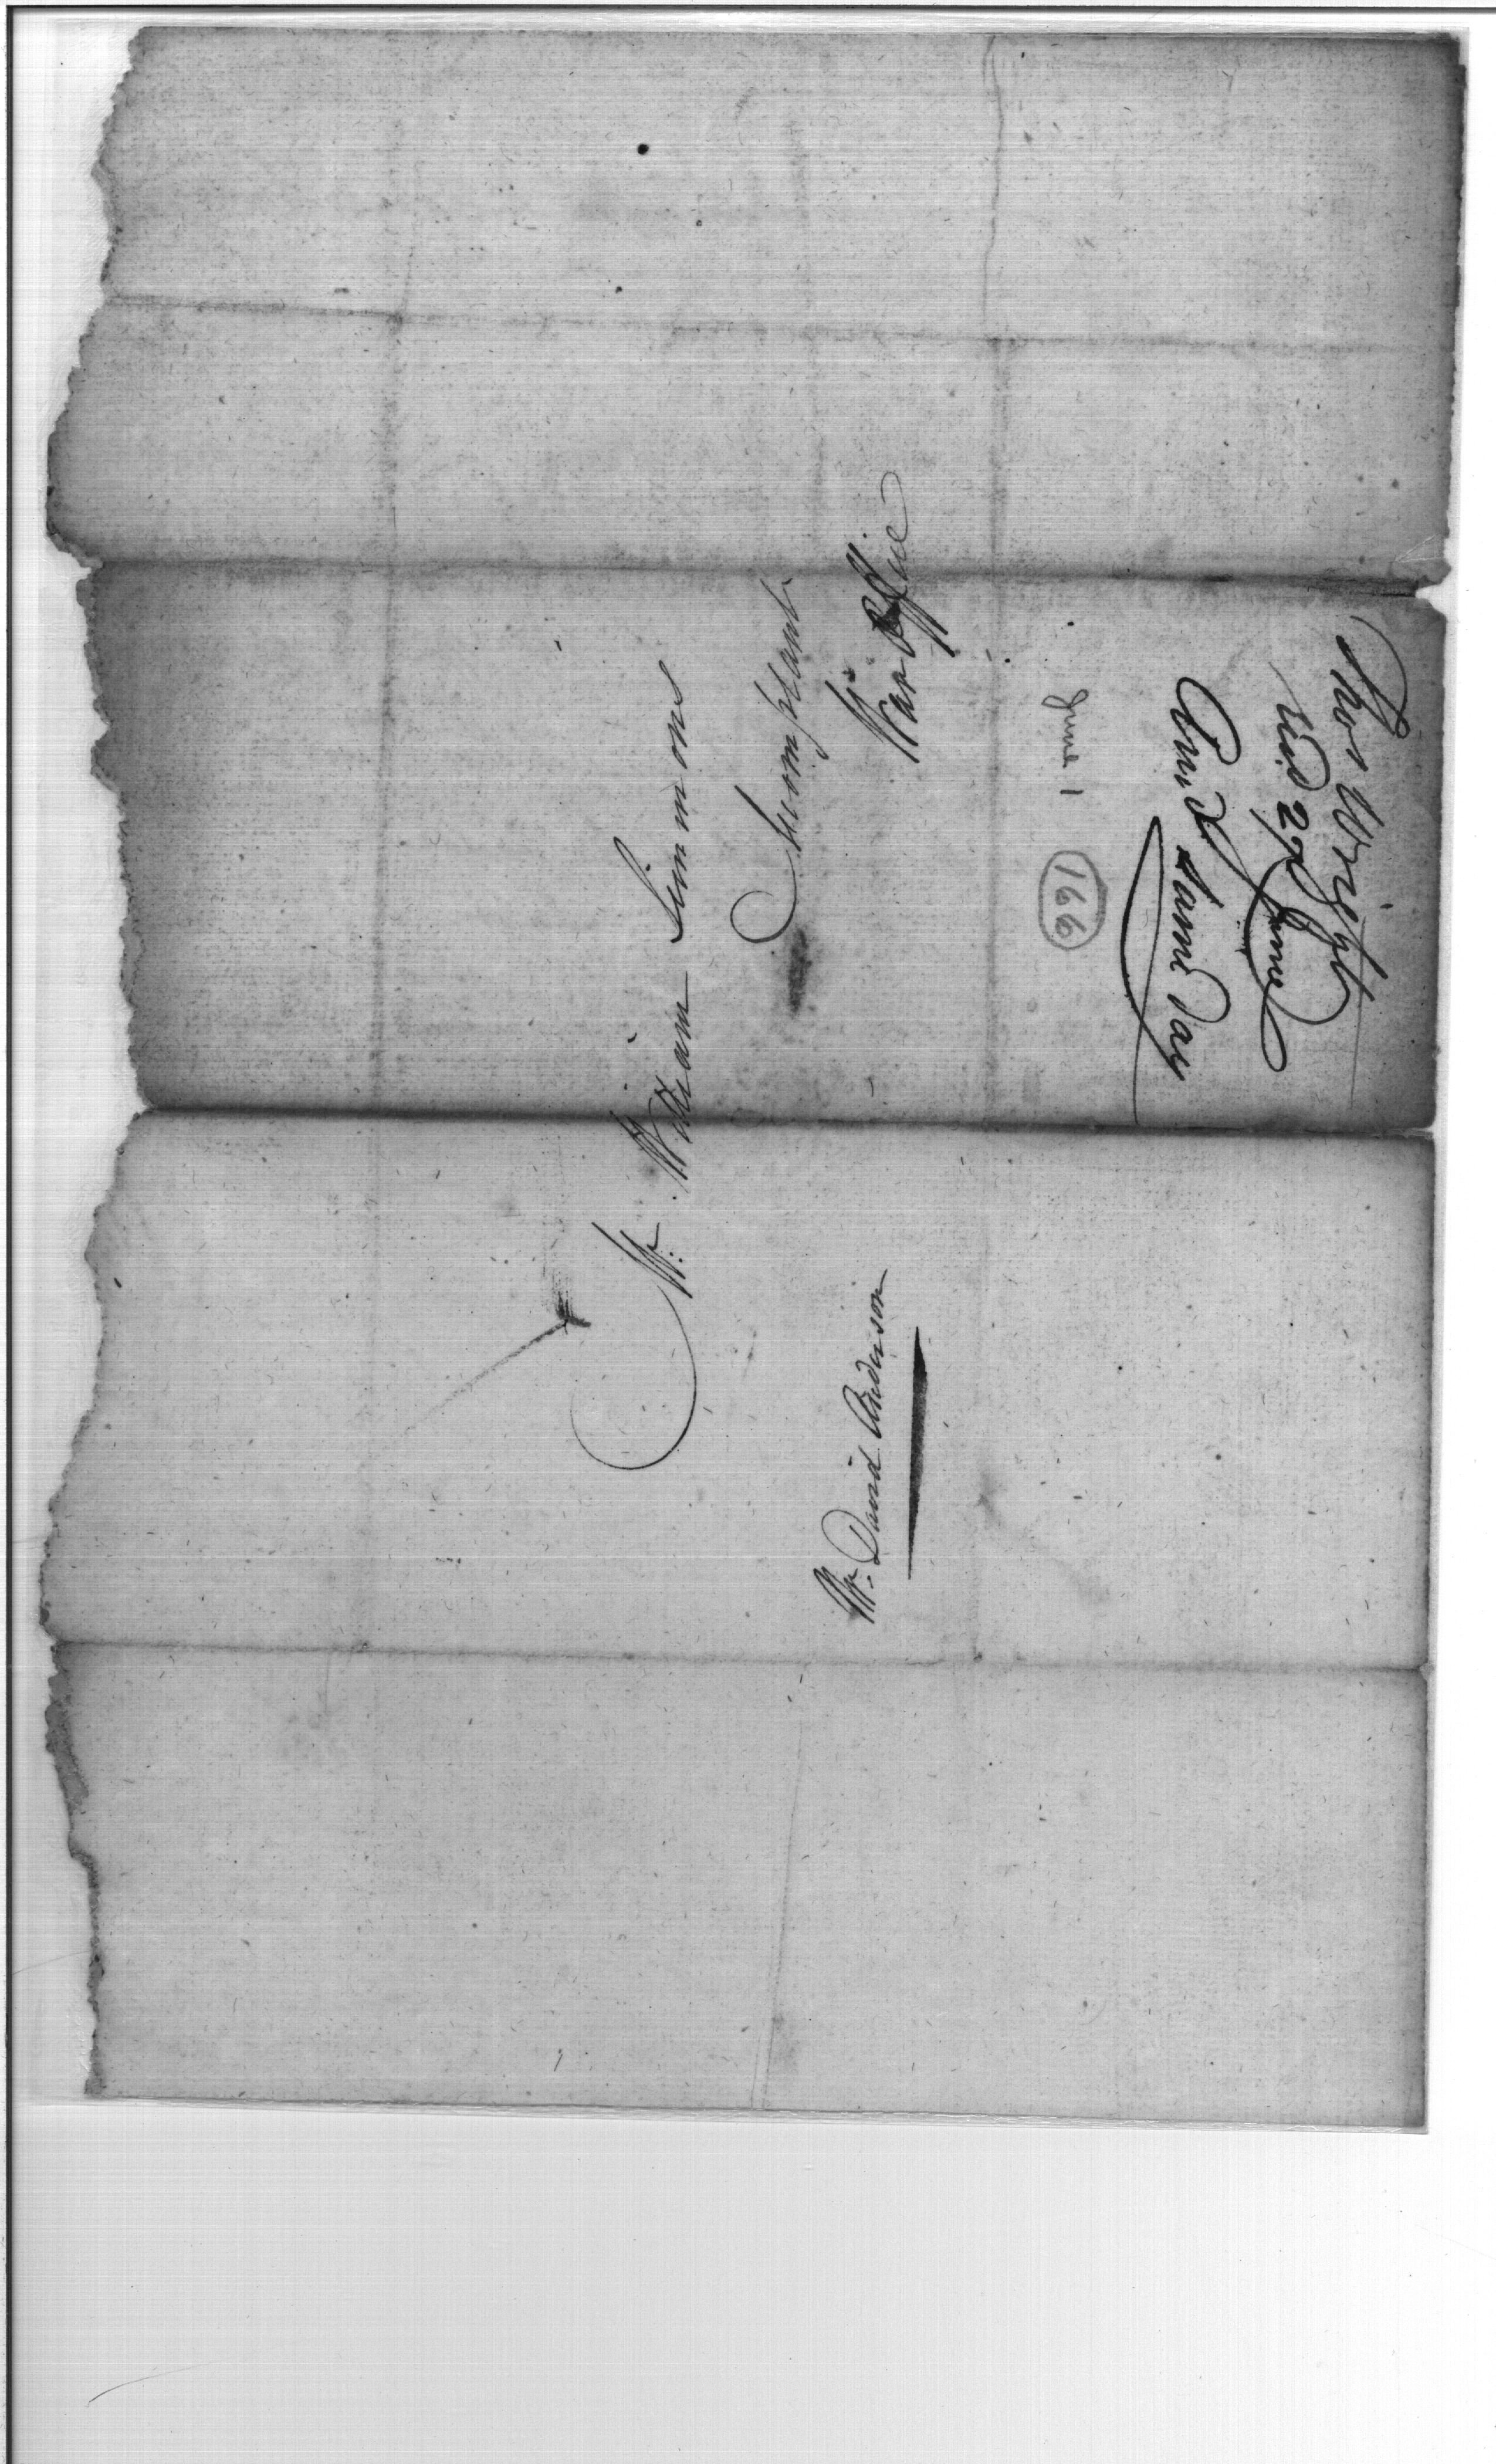 Mr. William Simmons
Accomptant
War Office
Mr. David Anderson
Thos Wright
27 June
same Day
June 1
166